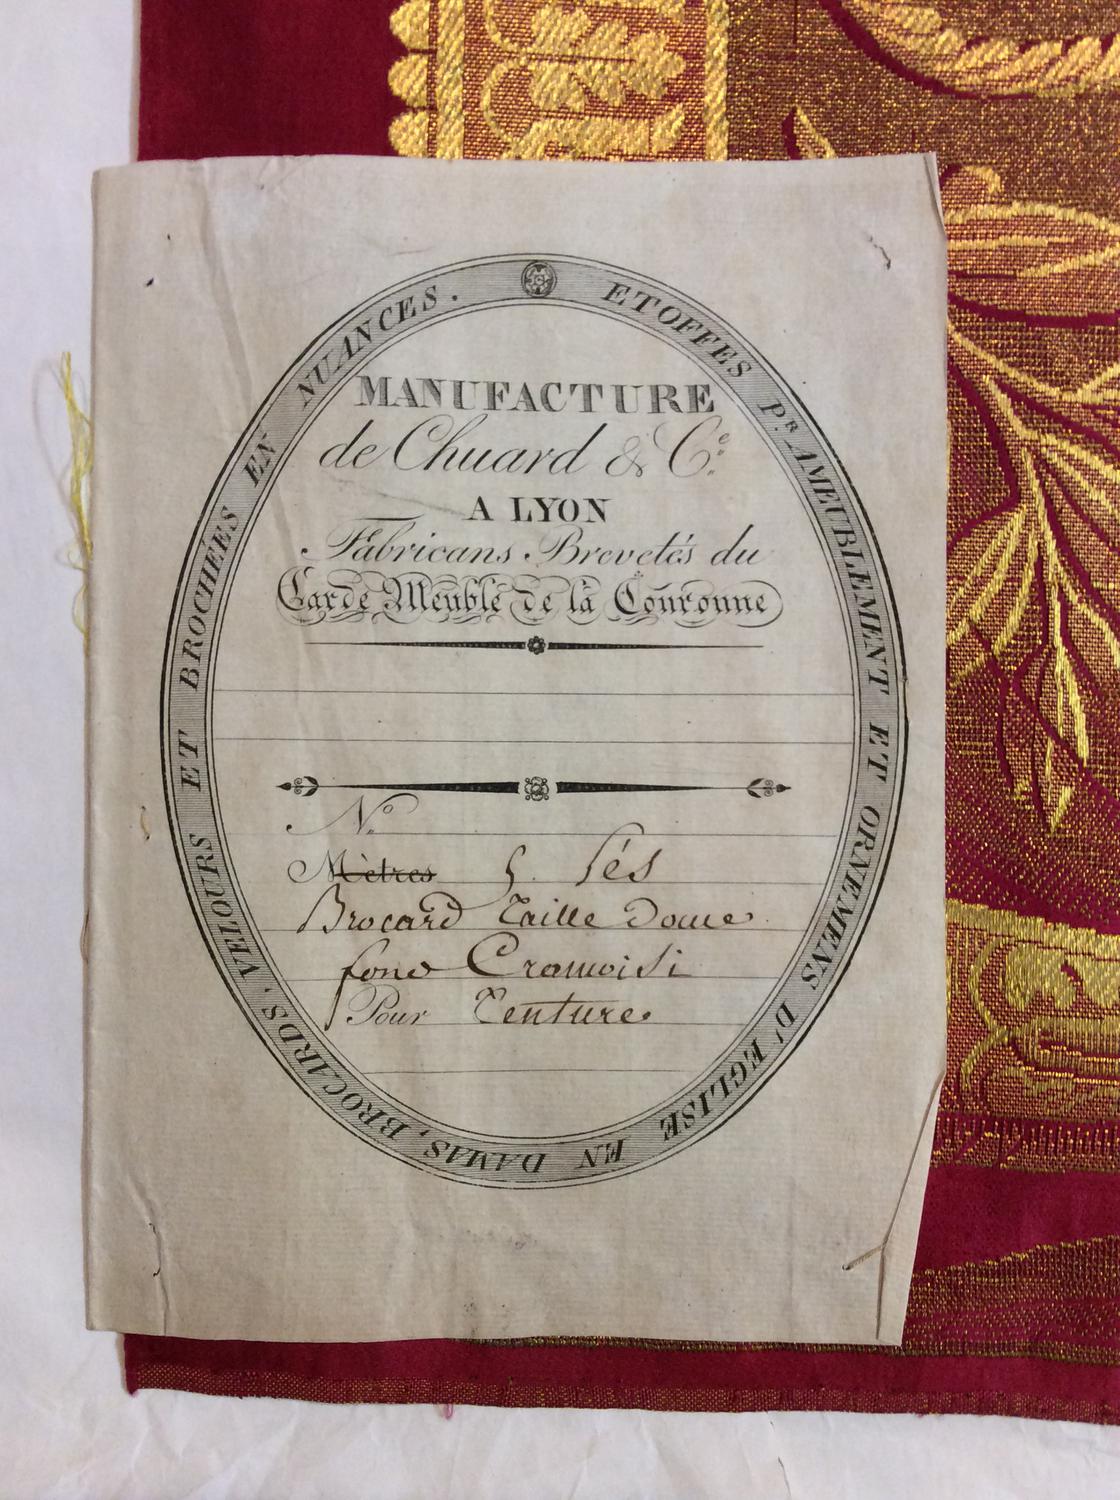 ETOFFES Pʀ. AMEUBLEMENT ET ORNEMENS D'EGLISE EN DAMAS, BROCARDS, VELOURS ET BROCHEES EN NUANCES.
MANUFACTURE
de Chuard & Cᵉ.
A LYON
Fabricans Brevetés du
Garde Meuble de la Couronne
Nº.
Mètres 5. lés
Brocard Taille douce
fond Cramoisi
Pour Tenture.